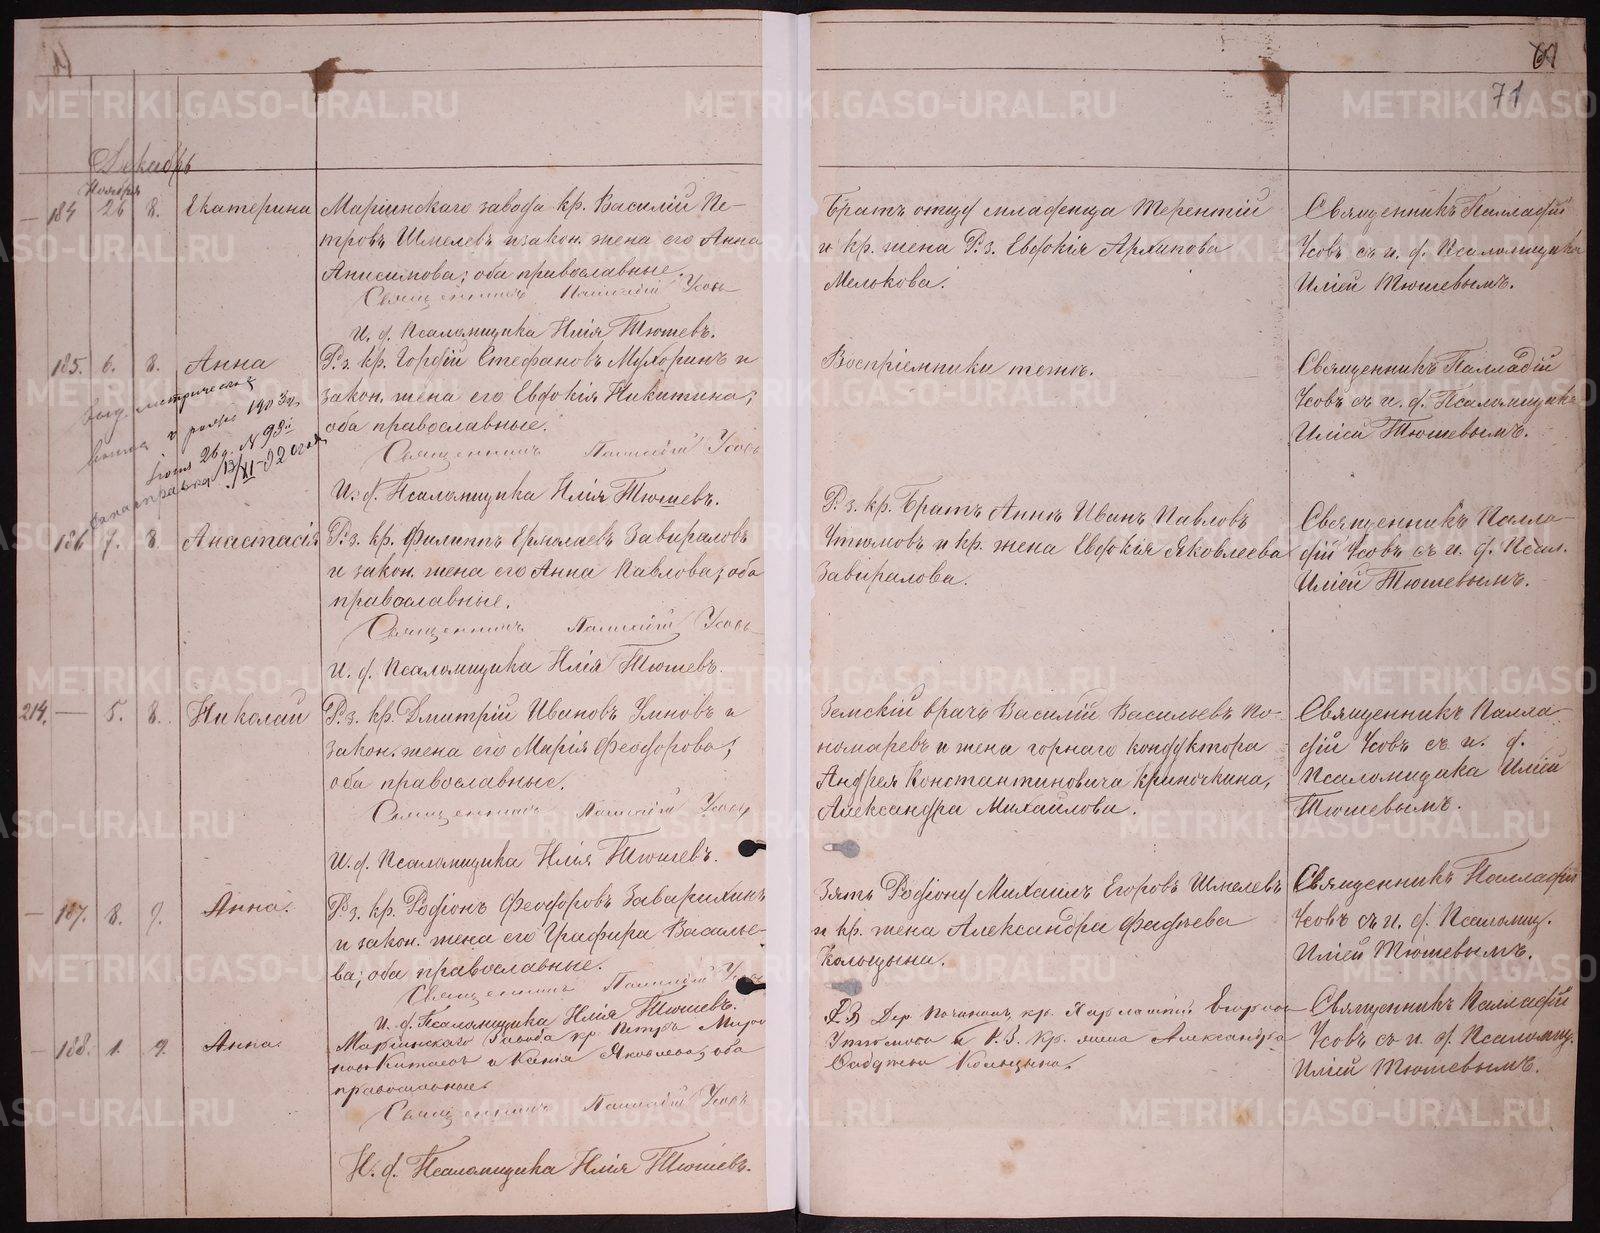 61
71
Декабрь
Ноября
184 26 8. Екатерина
Марiинскаго завода кр. Василiй Пе-
тровъ Шмелевъ и закон. жена его Анна
Анисимова; оба православные.
Священникъ Палладiй Усовъ
И. д. Псаломщика Илiя Тюшевъ.
Братъ отца младенца Терентiй
и кр. жена Р. з. Евдокiя Архипова
Мелокова.
Священникъ Палладiй
Усовъ съ и. д. Псаломщика
Илiей Тюшевымъ.
185. 6. 8. Анна
Р. з. кр. Гордiй Стефановъ Мухоринъ и
закон. жена его Евдокiя Никитина;
оба православные.
Священникъ Палладiй Усовъ
И. д. Псаломщика Илiя Тюшевъ.
метрическая
1903 г.
26 N 93
13/XI-92
Воспрiемники тотъ.
Священникъ Палладiй
Усовъ съ и. д. Псаломщика
Илiей Тюшевымъ.
186 7. 8. Анастасiя
Р. з. кр. Филиппъ Ермолаевъ Завираловъ
и закон. жена его Анна Павлова; оба
православные.
Священникъ Палладiй Усовъ
И. д. Псаломщика Илiя Тюшевъ.
Р. з. кр. Братъ Анны Иванъ Павловъ
Утюмовъ и кр. жена Евдокiя Яковлеева
Завиралова.
Священникъ Палла-
дiй Усовъ съ и. д. Псал.
Илiей Тюшевымъ.
214. — 5. 8. Николай
Р. з. кр. Дмитрiй Ивановъ Умновъ и
закон. жена его Марiя Феодорова;
оба православные.
Священникъ Палладiй Усовъ
И. д. Псаломщика Илiя Тюшевъ.
Земскiй врачъ Василiй Васильевъ По-
номаревъ и жена горнаго кондуктора
Андрея Константиновича Криночкина,
Александра Михайлова.
Священникъ Палла-
дiй Усовъ съ и. д.
Псаломщика Илiей
Тюшевымъ.
187. 8. 9. Анна.
Р. з. кр. Родiонъ Феодоровъ Заварихинъ
и закон. жена его Глафира Василье-
ва; оба православные.
Священникъ Палладiй Усовъ
И. д. Псаломщика Илiя Тюшевъ.
Зять Родiона Михаилъ Егоровъ Шмелевъ
и кр. жена Александра Фадѣева
Кольцына.
Священникъ Палладiй
Усовъ съ и. д. Псаломщ.
Илiей Тюшевымъ.
188. 1. 9. Анна.
Марiинскаго Завода кр. Петръ Миро-
новъ Китаевъ и Ксенiя Яковлева; оба
православные.
Священникъ Палладiй Усовъ
И. д. Псаломщика Илiя Тюшевъ.
Р. З. Дер. кр. Егоровъ
Утюмовъ и Р. З. кр. жена Александра
Фадѣева Кольцына.
Священникъ Палладiй
Усовъ съ и. д. Псаломщ.
Илiей Тюшевымъ.
METRIKI.GASO-URAL.RU